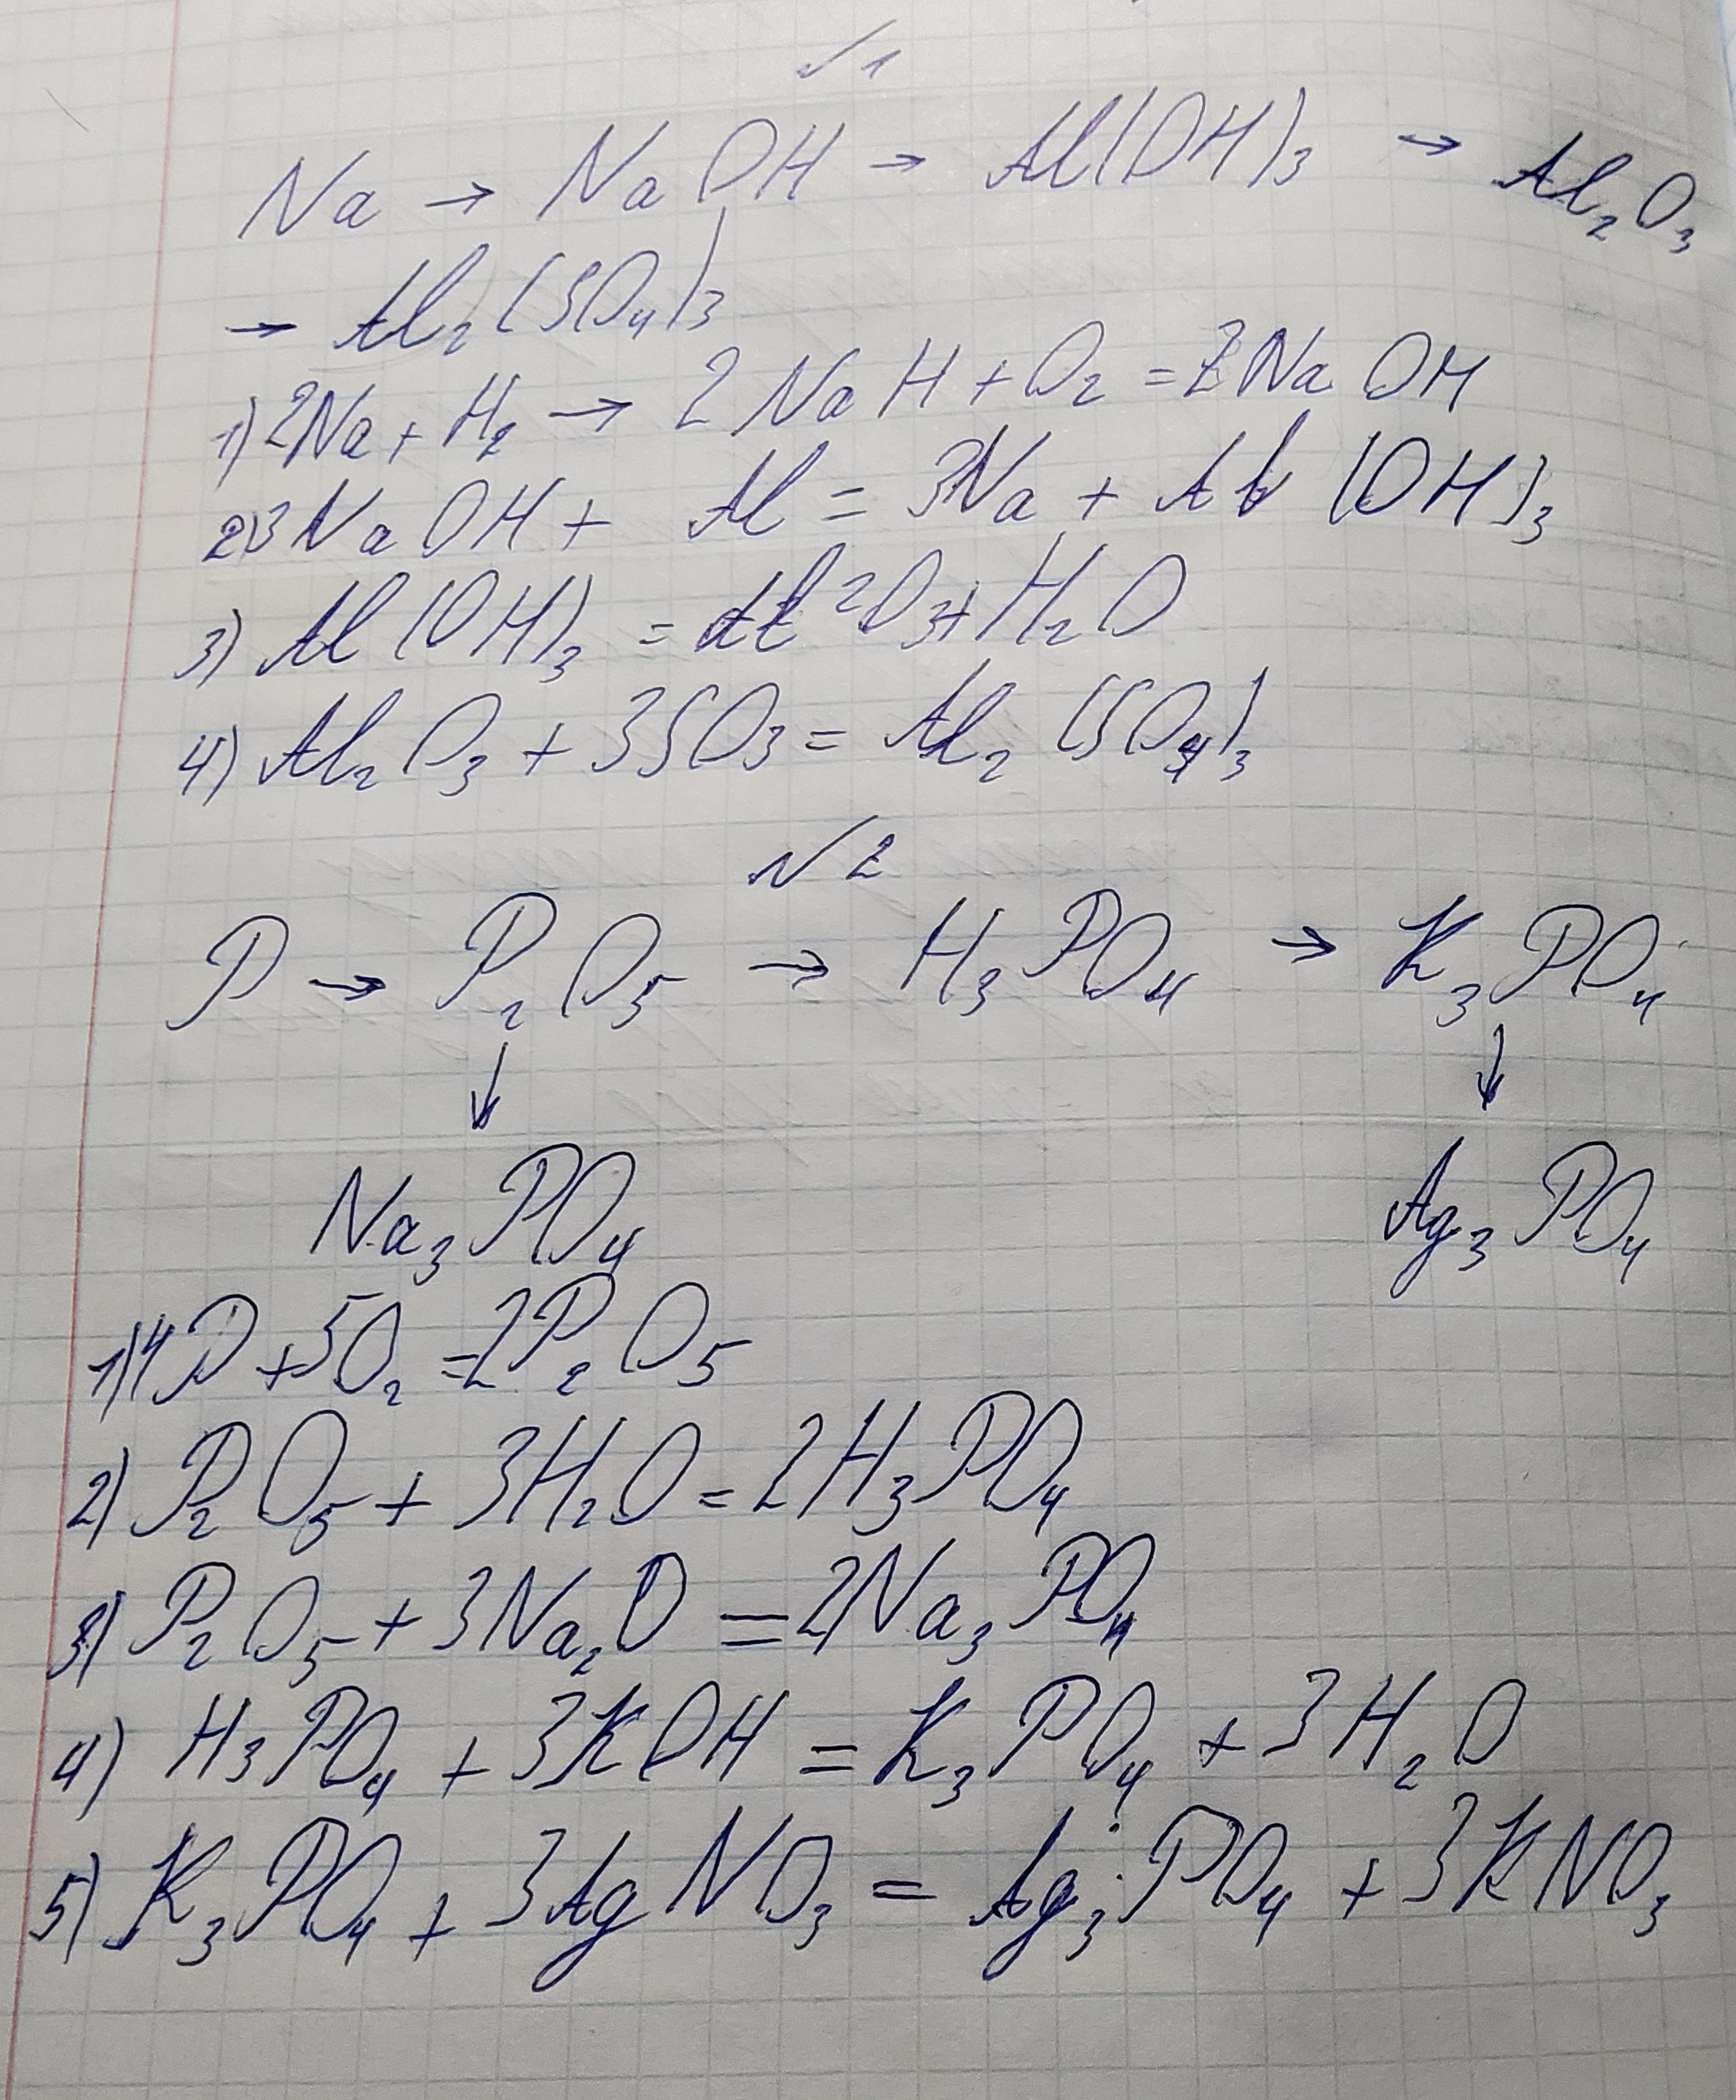 №1
Na → NaOH → Al(OH)₃ → Al₂O₃
→ Al₂(SO₄)₃
1) 2Na + H₂ → 2NaH + O₂ = 2NaOH
2) 3NaOH + Al = 3Na + Al(OH)₃
3) Al(OH)₃ = Al₂O₃ + H₂O
4) Al₂O₃ + 3SO₃ = Al₂(SO₄)₃
№2
P → P₂O₅ → H₃PO₄ → K₃PO₄
↓ ↓
Na₃PO₄ Ag₃PO₄
1) 4P + 5O₂ = 2P₂O₅
2) P₂O₅ + 3H₂O = 2H₃PO₄
3) P₂O₅ + 3Na₂O = 2Na₃PO₄
4) H₃PO₄ + 3KOH = K₃PO₄ + 3H₂O
5) K₃PO₄ + 3AgNO₃ = Ag₃PO₄ + 3KNO₃